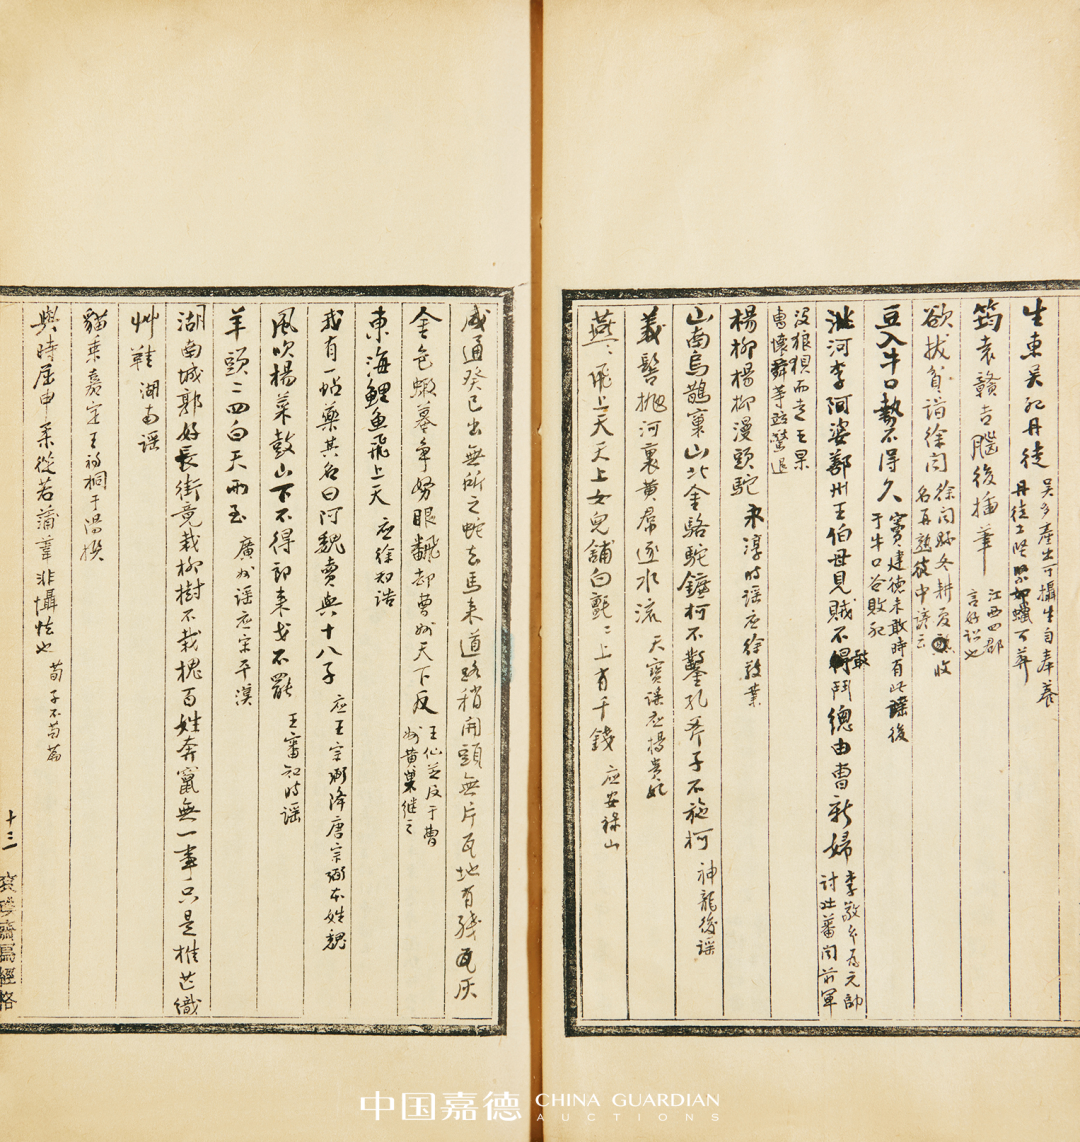 生東吳死丹徒 吳多產出可攝生自奉養
丹徒土堅如蠟可葬
筠袁贛吉腦後插筆 江西四郡
言好訟也
欲拔貧詣徐聞 徐聞縣冬耕夏收
名再熟彼中諺云
豆入牛口勢不得久 竇建德未敗時有此謠後
于牛口谷敗死
洮河李阿婆鄯州王伯母見賊不敢鬥總由曹新婦 李敬玄為元帥
討吐蕃聞前軍
沒狼狽而走王杲
曹懷舜等驚退
楊柳楊柳漫頭駝 永淳時謠應徐敬業
山南烏鵲窠山北金駱駝鐮柯不鑿孔斧子不施柯 神龍後謠
義髻拋河裏黃裙逐水流 天寶謠應楊貴妃
燕、飛上天天上女兒鋪白氈氈上有千錢 應安祿山
咸通癸巳出無所之蛇去馬來道路稍開頭無片瓦地有殘灰
金色蝦蟇爭努眼翻却曹州天下反 王仙芝反于曹
州黃巢繼之
東海鯉魚飛上天 應徐知誥
我有一帖藥其名曰阿魏賣與十八子 應王宗弼降唐宗弼本姓魏
風吹楊菜鼓山下不得郎來戈不罷 王審知時謠
羊頭二四白天雨至 廣州謠應宋平漢
湖南城郭好長街竟栽柳樹不栽槐百姓奔竄無一事只是椎芒織
艸鞋 湖南謠
與時屈申柔從若蒲葦非懾怯也 荀子不苟篇
十三
中国嘉德 CHINA GUARDIAN
AUCTIONS